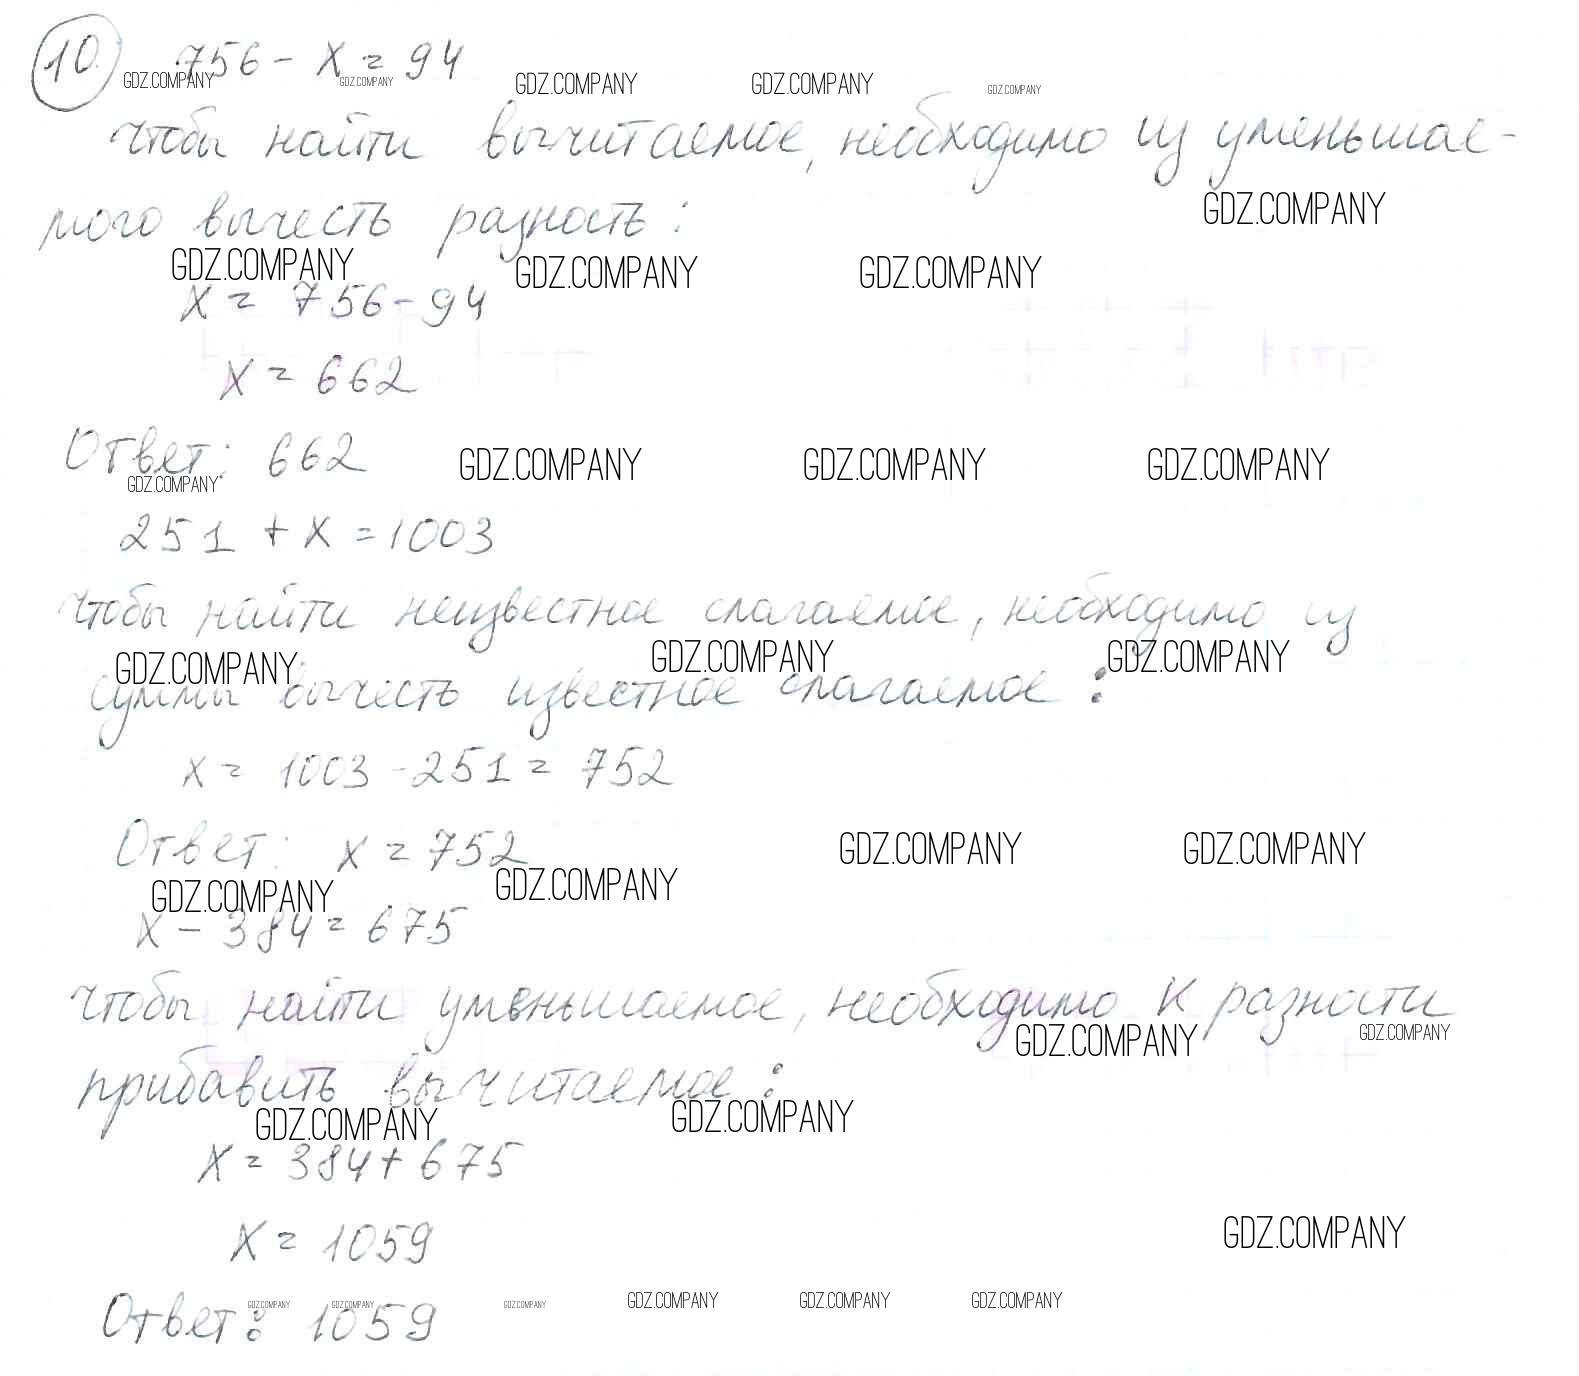 10 756 - x = 94
GDZ.COMPANY GDZ.COMPANY GDZ.COMPANY GDZ.COMPANY GDZ.COMPANY
чтобы найти вычитаемое, необходимо из уменьшае-
мого вычесть разность:
GDZ.COMPANY
GDZ.COMPANY GDZ.COMPANY GDZ.COMPANY
x = 756 - 94
x = 662
Ответ: 662
GDZ.COMPANY GDZ.COMPANY GDZ.COMPANY
GDZ.COMPANY
251 + x = 1003
чтобы найти неизвестное слагаемое, необходимо из
GDZ.COMPANY GDZ.COMPANY GDZ.COMPANY
суммы вычесть известное слагаемое:
x = 1003 - 251 = 752
Ответ: x = 752
GDZ.COMPANY GDZ.COMPANY
GDZ.COMPANY GDZ.COMPANY
x - 384 = 675
чтобы найти уменьшаемое, необходимо к разности
GDZ.COMPANY GDZ.COMPANY
прибавить вычитаемое:
GDZ.COMPANY GDZ.COMPANY
x = 384 + 675
x = 1059
GDZ.COMPANY
Ответ: 1059
GDZ.COMPANY GDZ.COMPANY GDZ.COMPANY GDZ.COMPANY GDZ.COMPANY GDZ.COMPANY